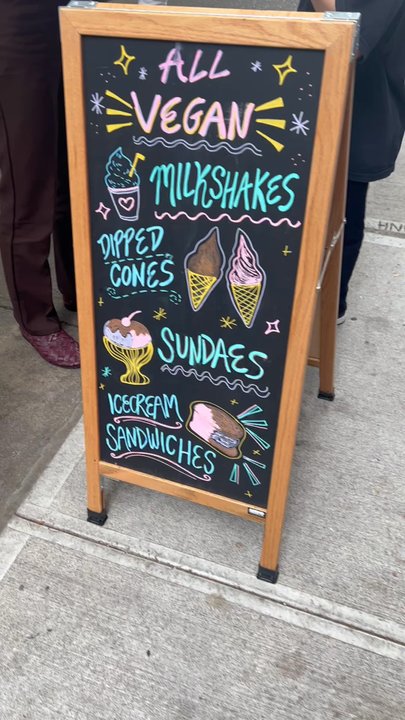 ALL
VEGAN
MILKSHAKES
DIPPED
CONES
SUNDAES
ICECREAM
SANDWICHES